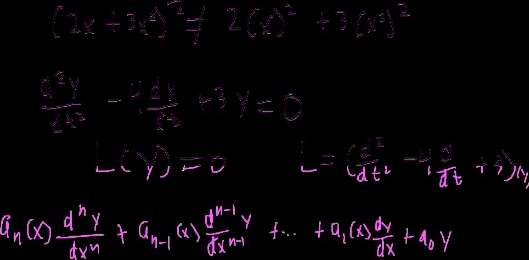 (2x + 3x²)² ≠ 2(x)² + 3(x²)²
d²y/dt² - 4 dy/dt + 3y = 0
L(y) = 0    L = (d²/dt² - 4 d/dt + 3)(y)
aₙ(x) dⁿy/dxⁿ + aₙ₋₁(x) dⁿ⁻¹y/dxⁿ⁻¹ + ... + a₁(x) dy/dx + a₀ y